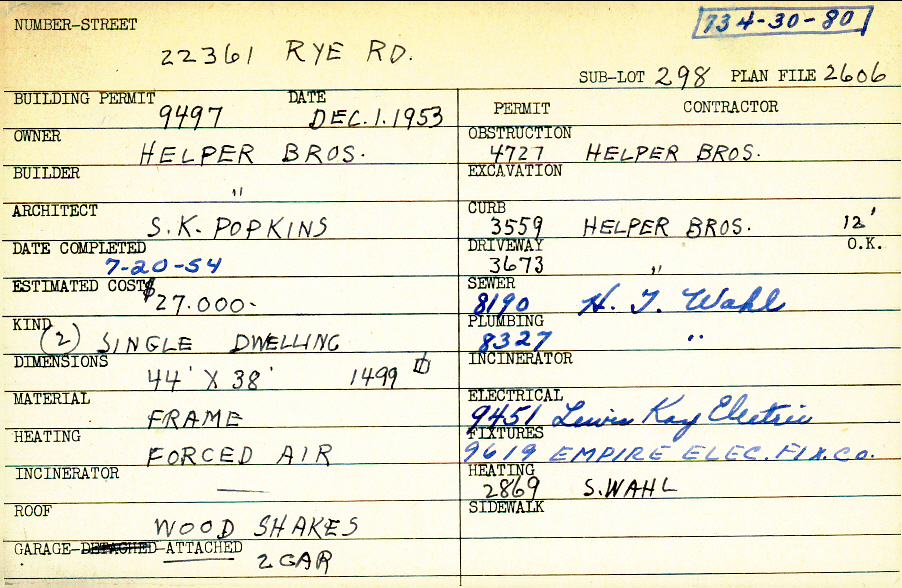 NUMBER-STREET
734-30-80
22361 RYE RD.
SUB-LOT 298 PLAN FILE 2606
BUILDING PERMIT DATE
9497 DEC.1.1953
OWNER
HELPER BROS.
BUILDER
"
ARCHITECT
S.K. POPKINS
DATE COMPLETED
7-20-54
ESTIMATED COST
$27.000-
KIND
(2) SINGLE DWELLING
DIMENSIONS
44' X 38' 1499
MATERIAL
FRAME
HEATING
FORCED AIR
INCINERATOR
—
ROOF
WOOD SHAKES
GARAGE-DETACHED-ATTACHED
2 CAR
PERMIT CONTRACTOR
OBSTRUCTION
4727 HELPER BROS.
EXCAVATION
CURB
3559 HELPER BROS. 12'
DRIVEWAY O.K.
3673 "
SEWER
8190 H. J. Wahl
PLUMBING
8327 "
INCINERATOR
ELECTRICAL
9451 Lewis Kay Electric
FIXTURES
9619 EMPIRE ELEC. FIX. CO.
HEATING
2869 S. WAHL
SIDEWALK